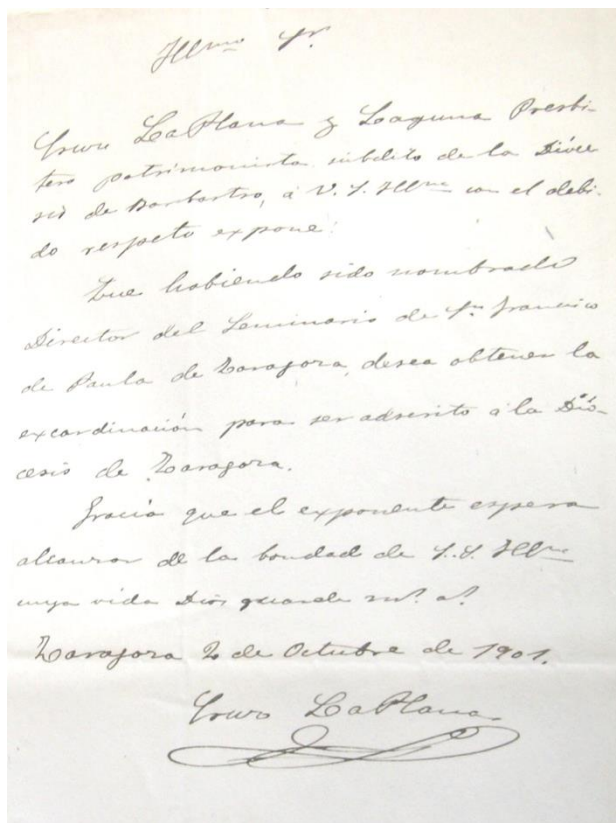 Illmo Sr.
Cruz LaPlana y Laguna Presbi-
tero patrimonista subdito de la Dióce
sis de Barbastro, á V. S. Illma con el debi-
do respeto expone:
Que habiendo sido nombrado
Director del Seminario de Sn Francisco
de Paula de Zaragoza, desea obtener la
excardinación para ser adscrito á la Dió-
cesis de Zaragoza.
Gracia que el exponente espera
alcanzar de la bondad de S. S. Illma
cuya vida Dios guarde ms. as.
Zaragoza 2 de Octubre de 1901.
Cruz LaPlana